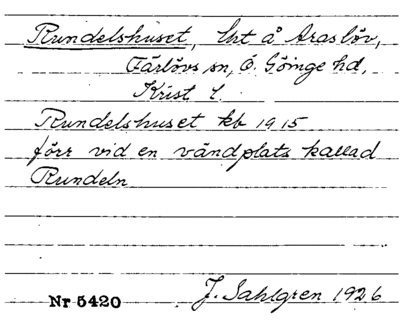 Rundelshuset, lht å Araslöv,
Färlövs sn, Ö. Göinge hd,
Krist. l.
Rundelshuset kb 1915
förr vid en vändplats kallad
Rundeln
Nr 5420 J. Sahlgren 1926